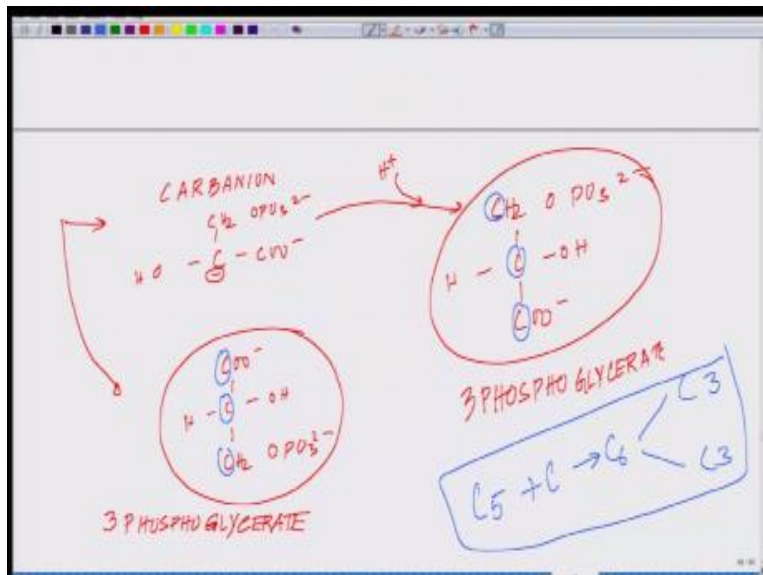 CARBANION
CH2 OPO3 2-
HO - C - COO-
-
H+
CH2 O PO3 2-
H - C - OH
COO-
3 PHOSPHO GLYCERATE
COO-
H - C - OH
CH2 OPO3 2-
3 PHOSPHO GLYCERATE
C5 + C → C6
C3
C3